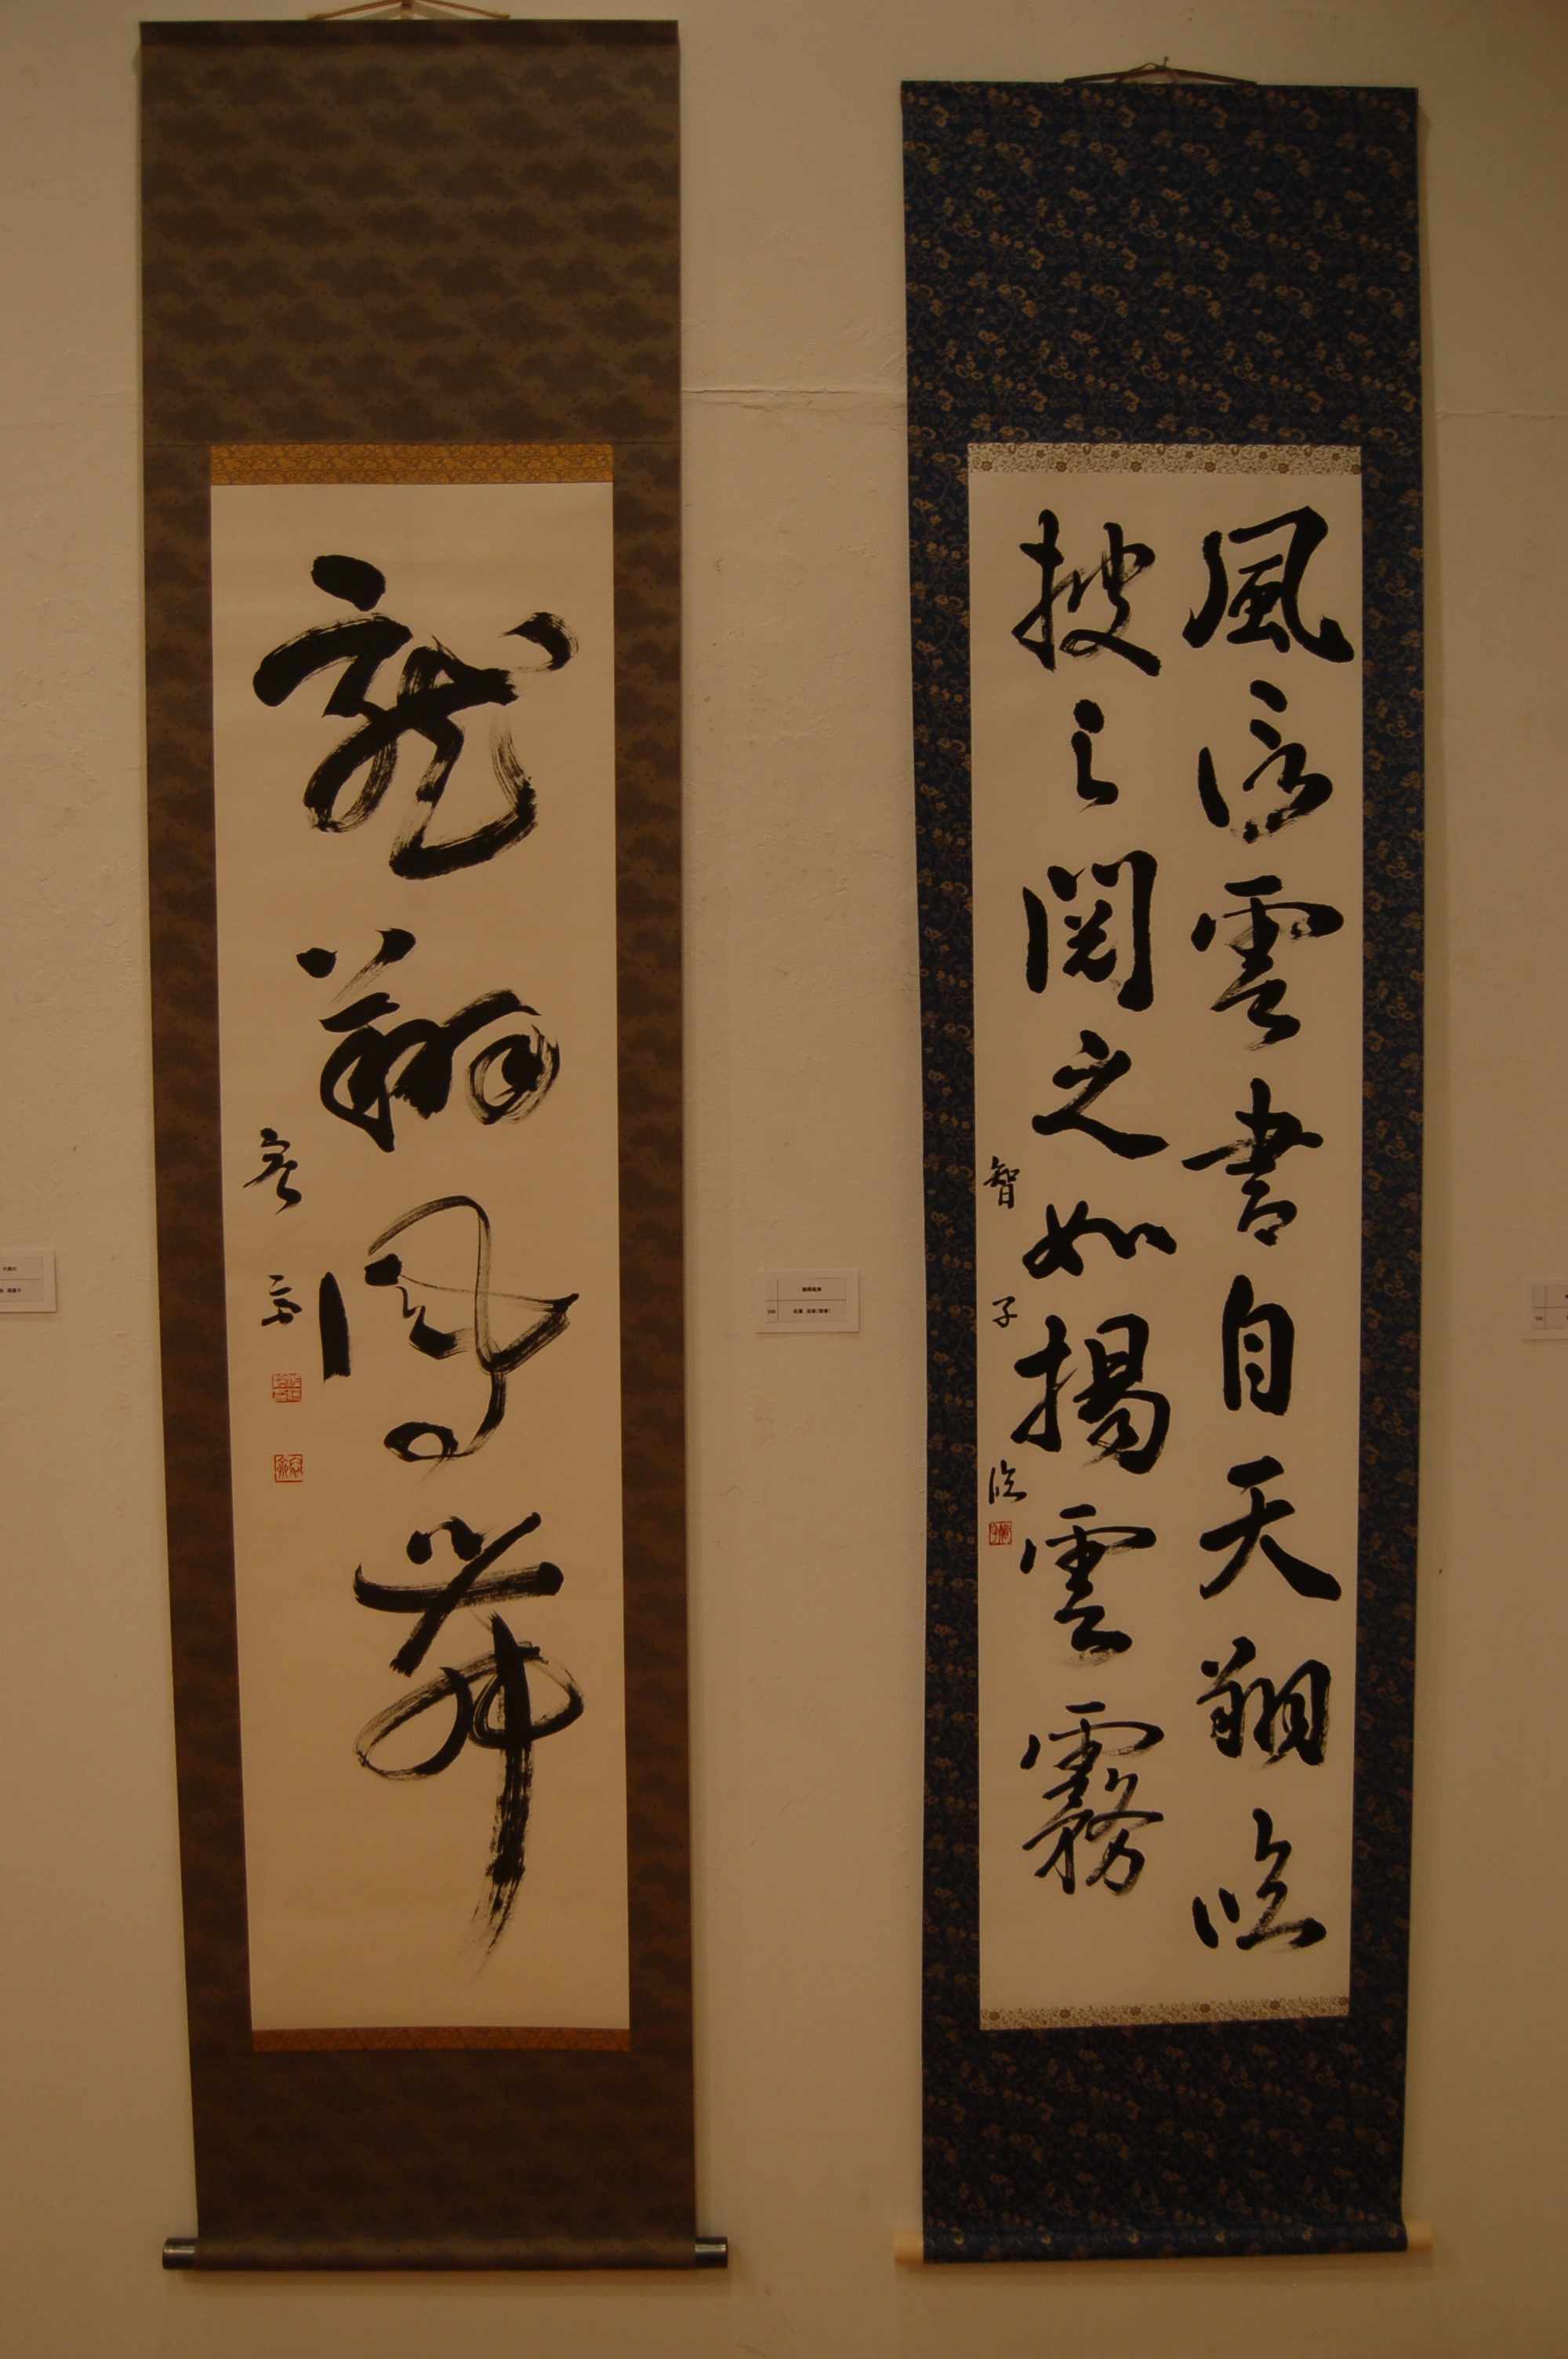 風信雲書自天翔臨
披之閲之如揭雲霧
智子臨
龍翔鳳舞